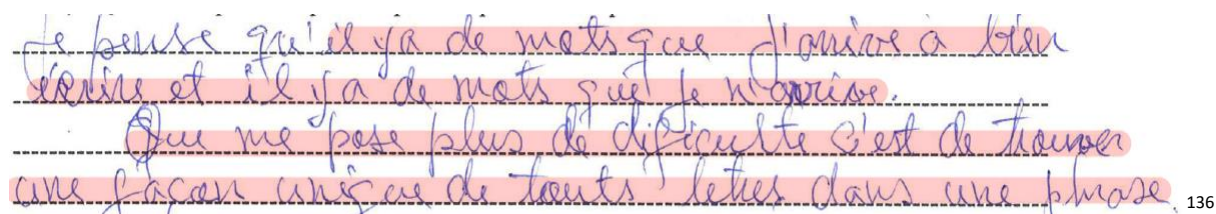 Je pense qu'il ya de mots que j'arrive a bien
écrire et il ya de mots que je n'arrive.
Que me pose plus de dificulte c'est de trouver
une façon unique de touts letres dans une phrase. 136